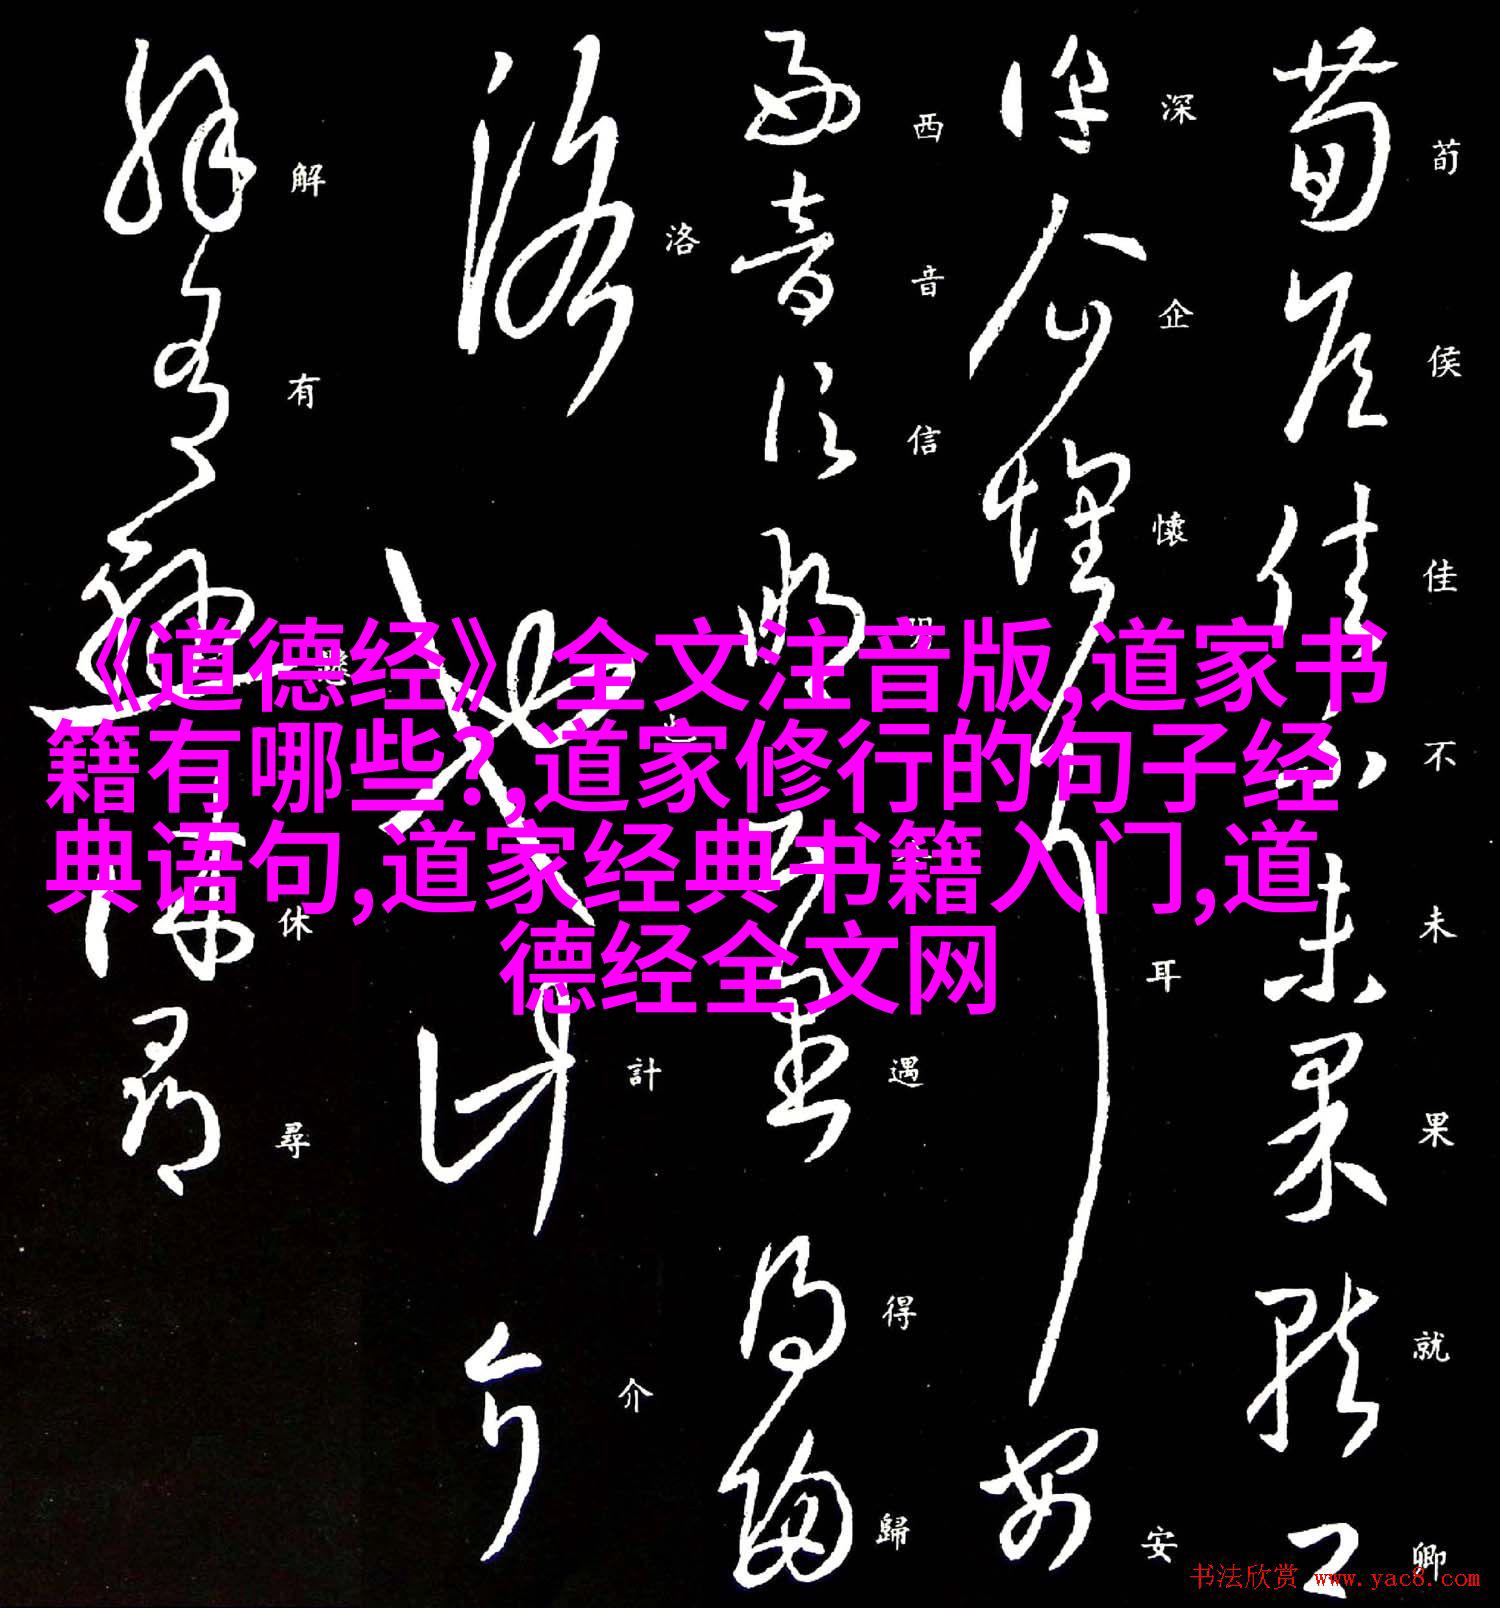 《道德经》全文注音版,道家书
籍有哪些?,道家修行的句子经
典语句,道家经典书籍入门,道
德经全文网
荀侯佳不未果就卿
深企懷耳安
西音信明遇得歸
洛也計介
解有休尋
书法欣赏 www.yac8.com